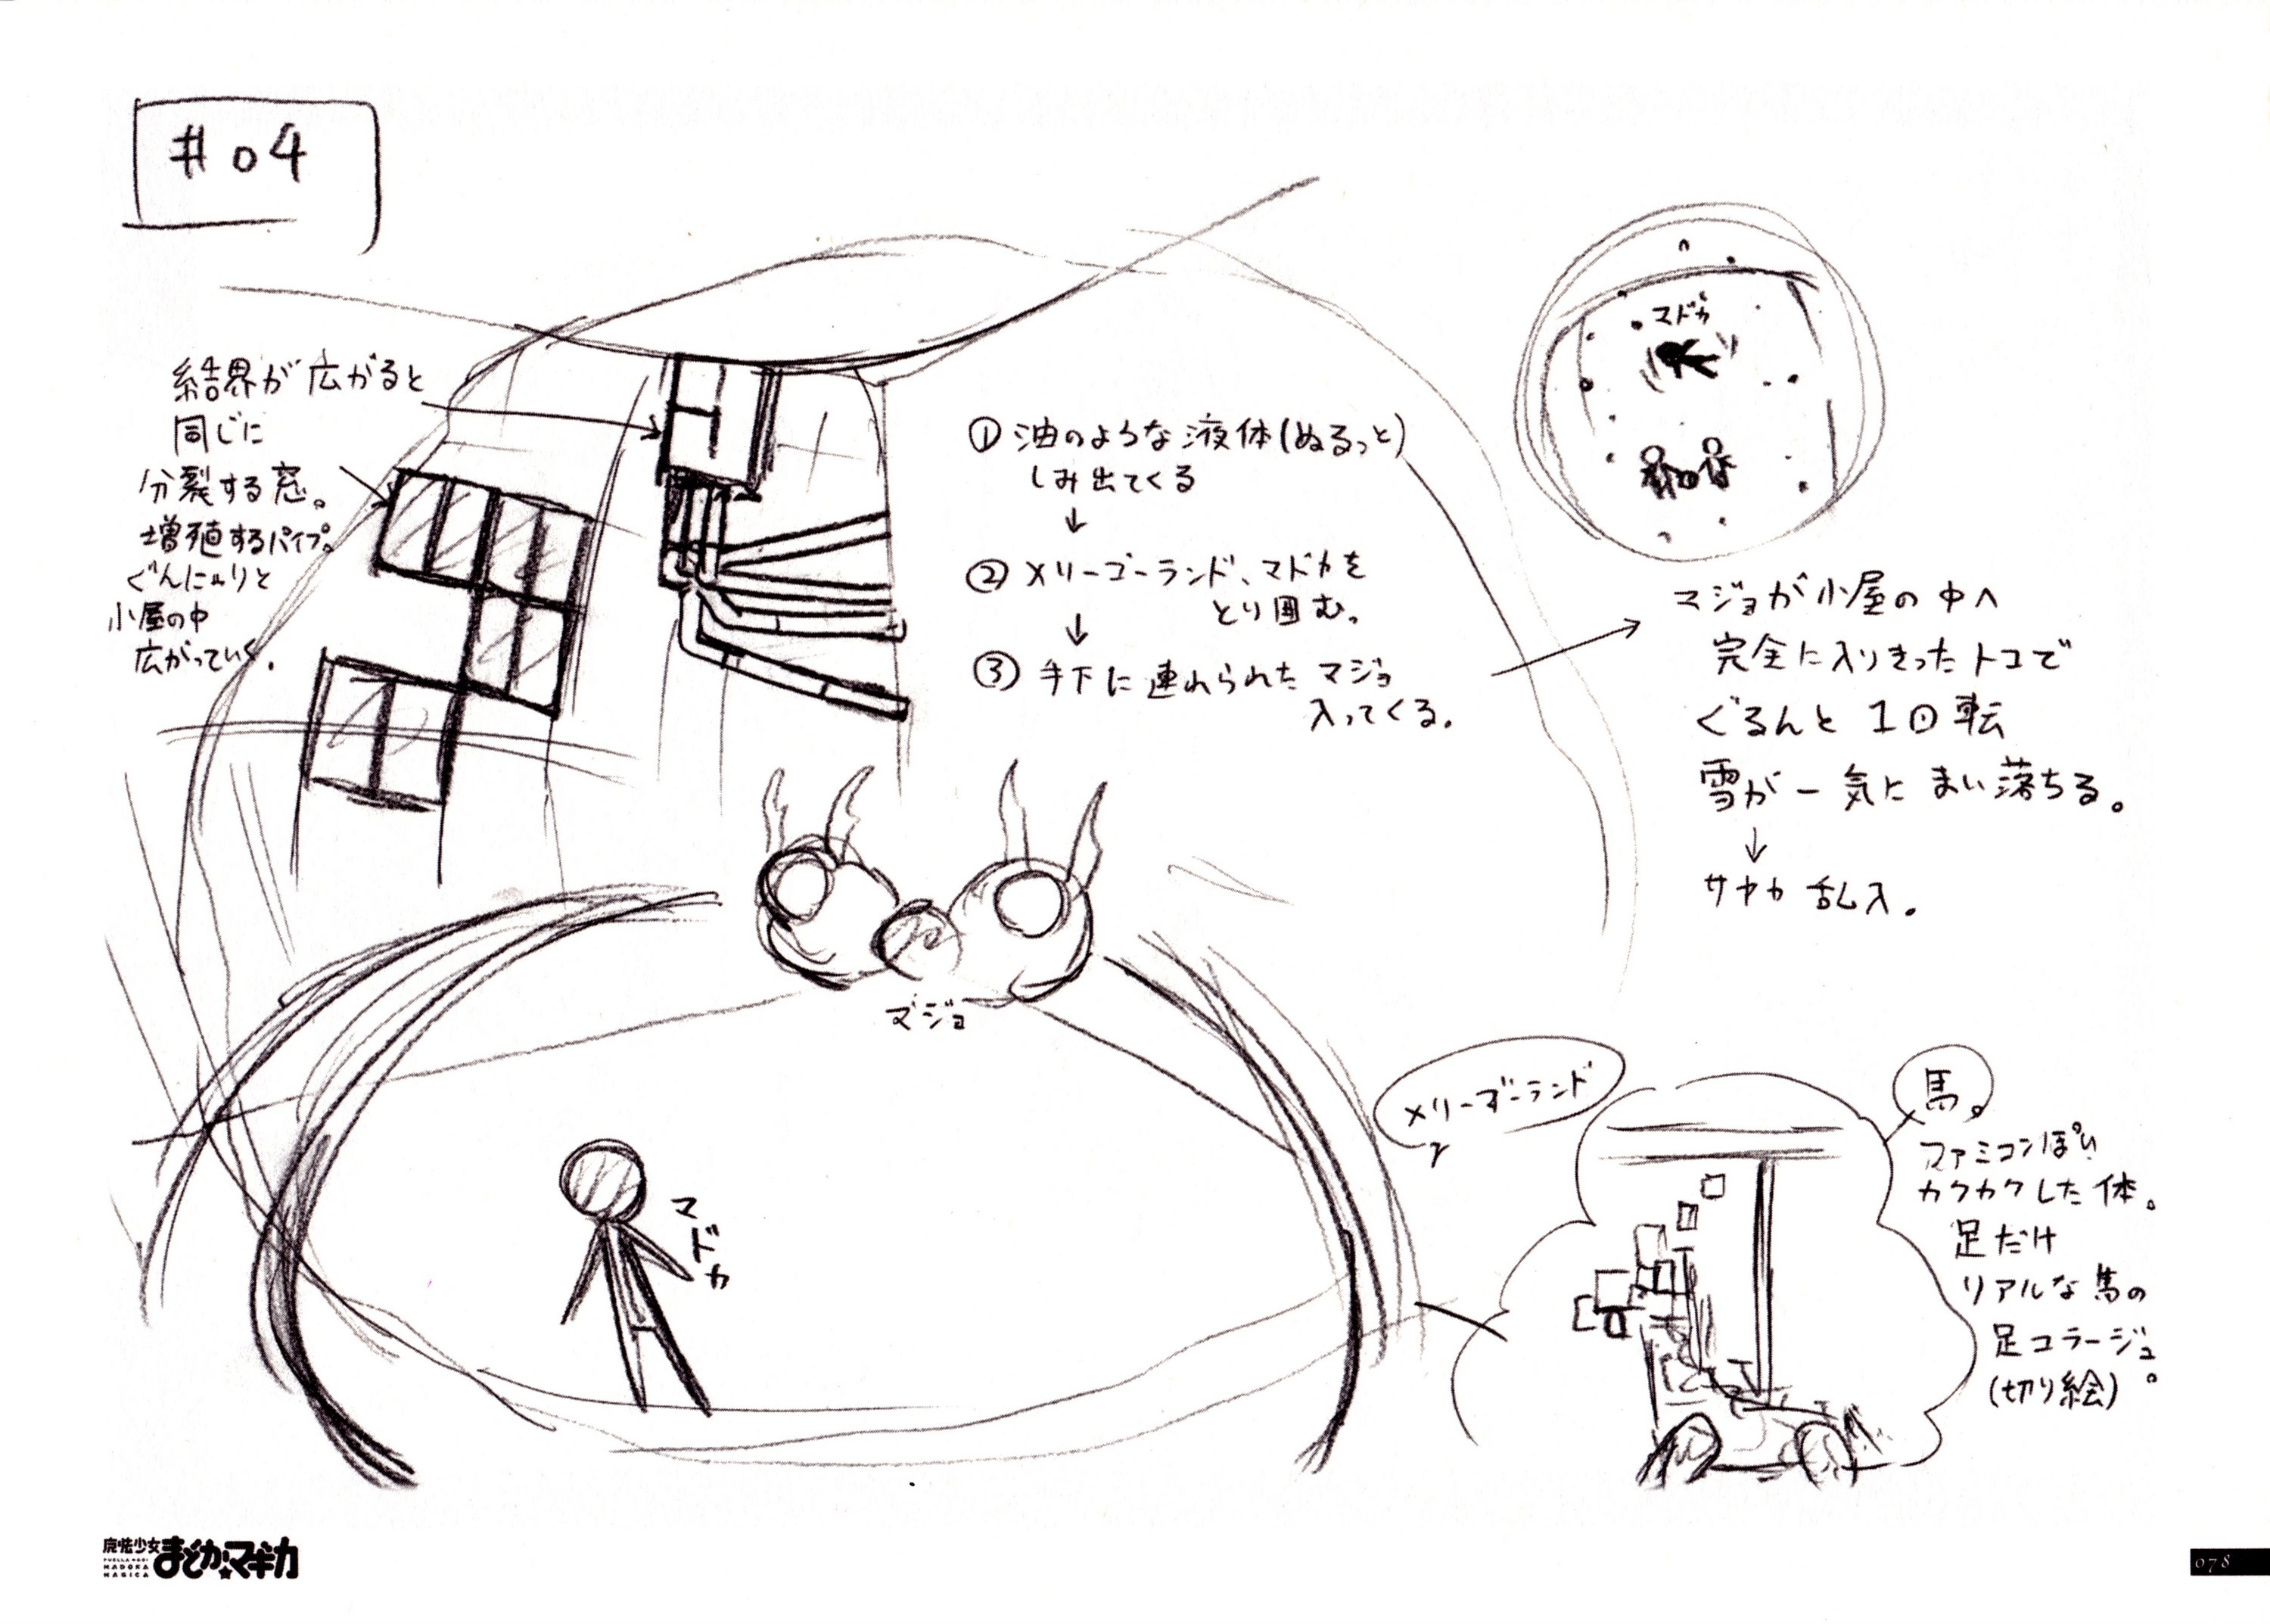 #04
結界が広がると
同じに
分裂する窓。
増殖するパイプ。
ぐんにゃりと
小屋の中
広がっていく。
①油のような液体(ぬるっと)
しみ出てくる
↓
②メリーゴーランド、マドカを
とり囲む。
↓
③手下に連れられたマジョ
入ってくる。
マドカ
マジョが小屋の中へ
完全に入りきったトコで
ぐるんと1回転
雪が一気にまい落ちる。
↓
サヤカ乱入。
マジョ
マドカ
メリーゴーランド
馬。
ファミコンぽい
カクカクした体。
足だけ
リアルな馬の
足コラージュ。
(切り絵)
魔法少女
まどか☆マギカ
PUELLA MAGI
MADOKA
MAGICA
078